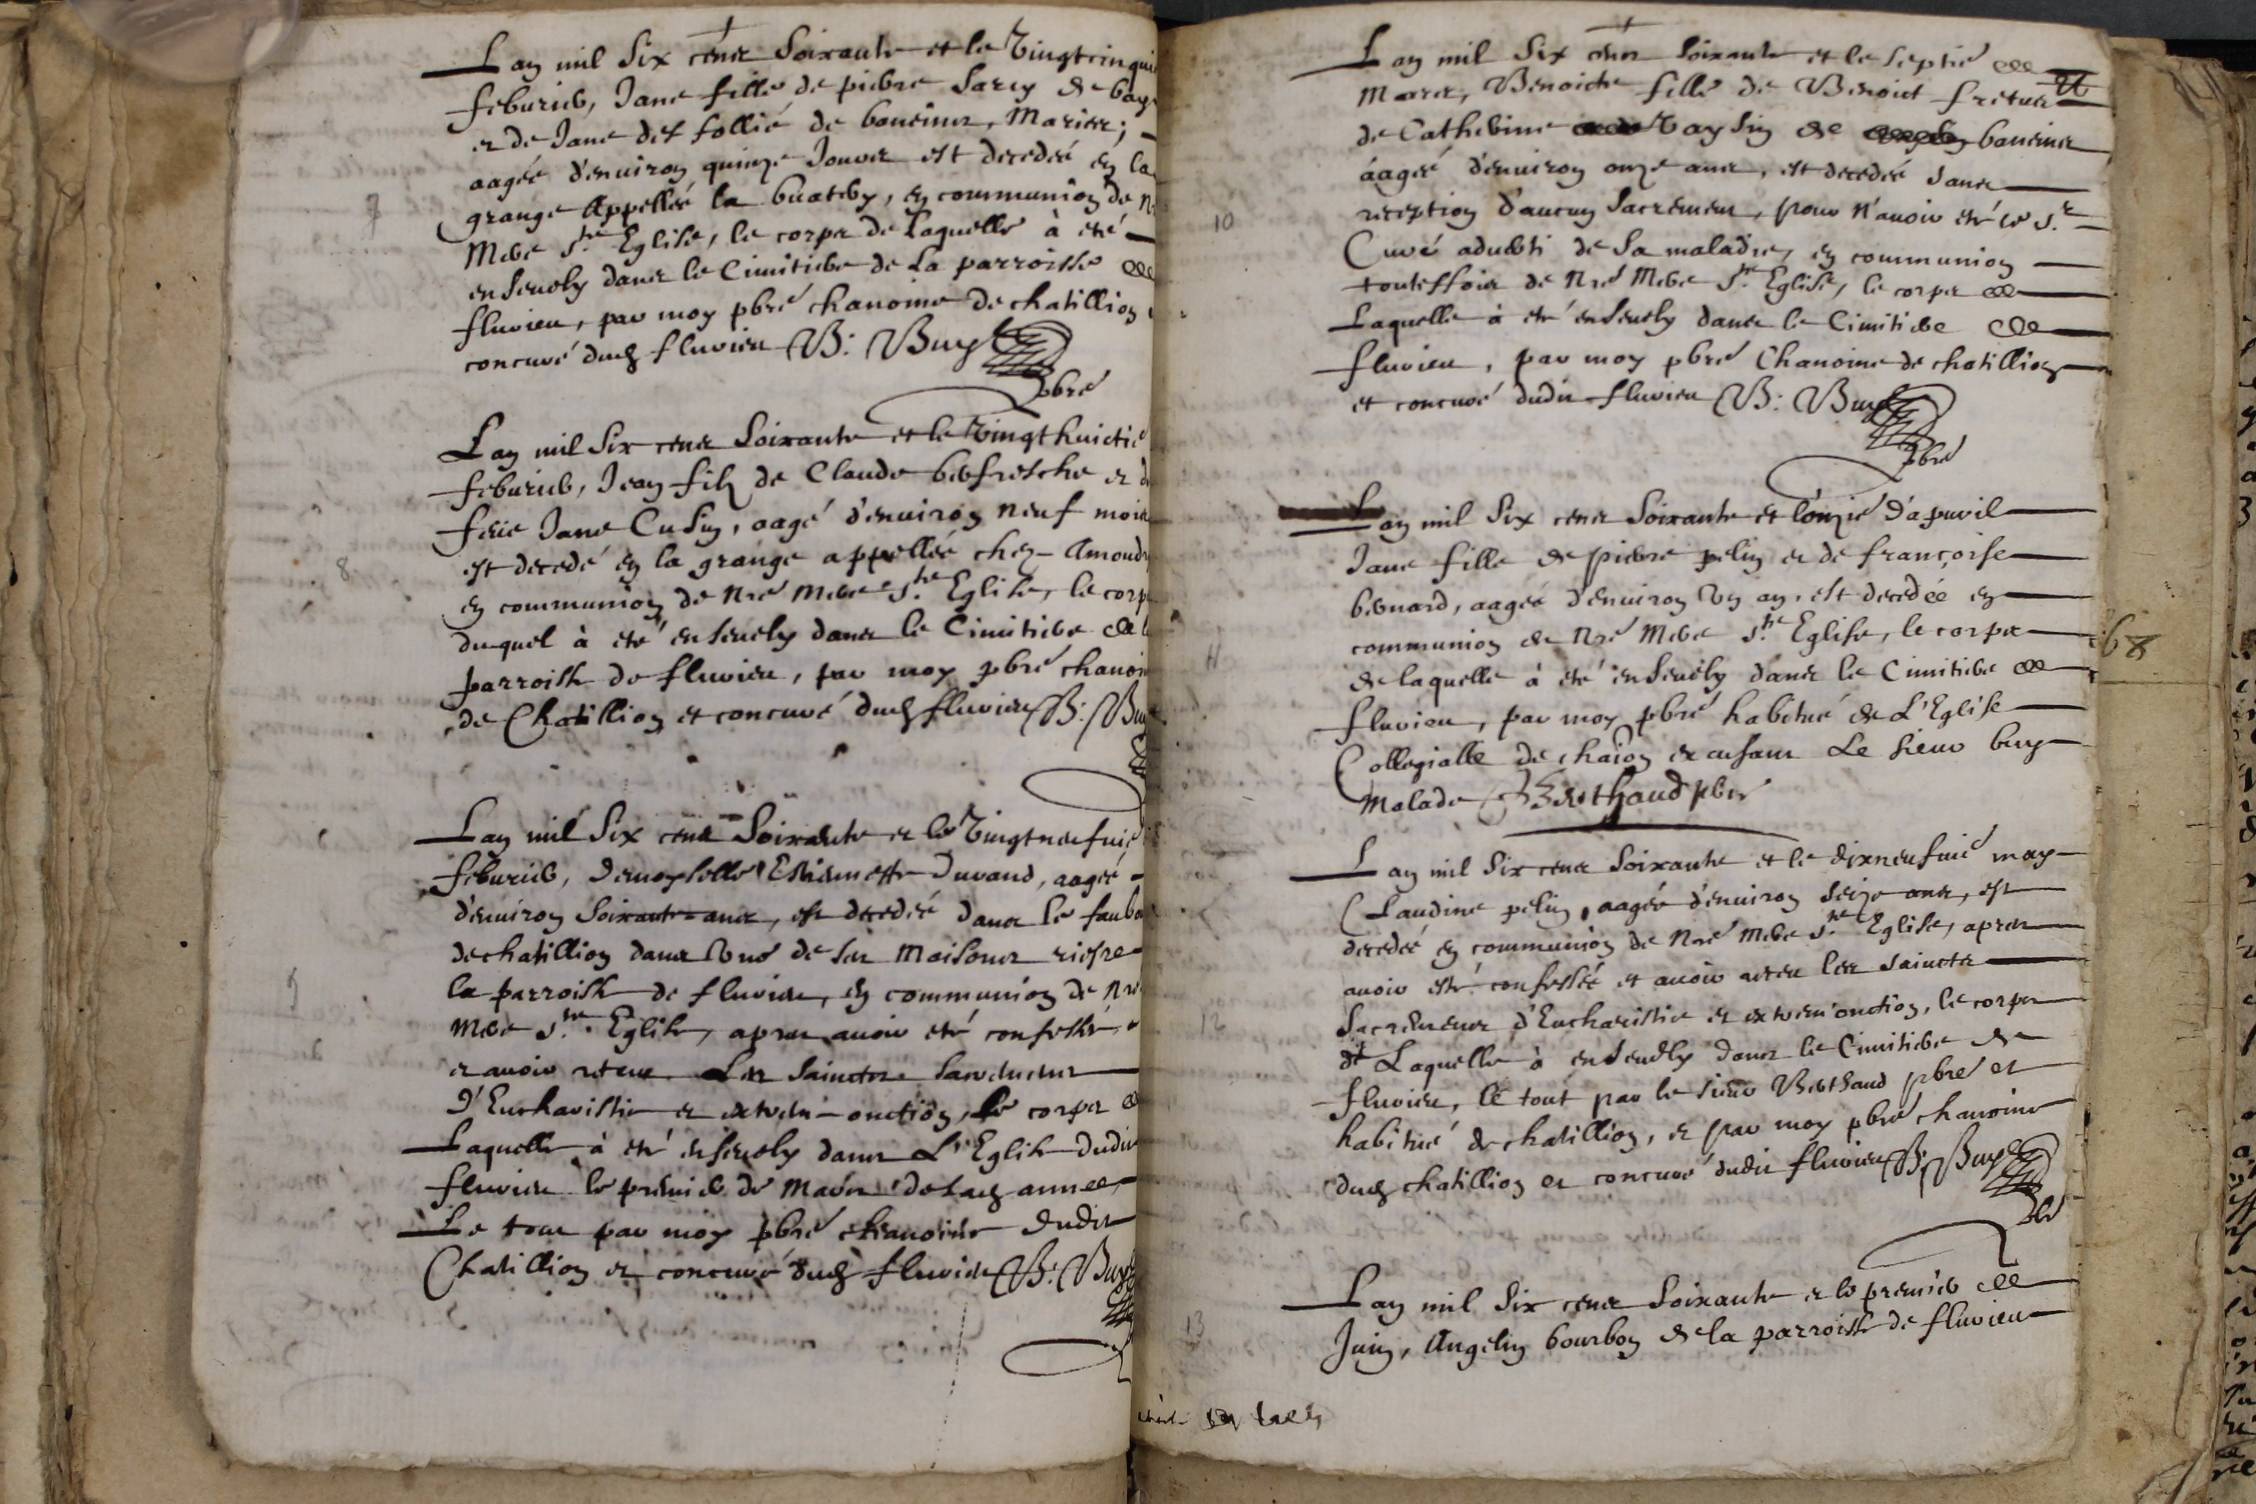 Lan mil six cens soixante et le vingtcinqui
feburier, Jane fille de pierre Sarcy de
et de Jane des follié de boneins, Mariez;
aagée d'enuiron quinze Jours est decedée en la
7
grange appellée la, en communion de n
Mere Ste Eglise, le corps de laquelle à eté
enseuely dans le Cimitiere de la parroisse de
flurieu, par moy pbre chanoine de chatillion
concuré dud flurieu B: Buy
pbre
Lan mil six cens soixante et le vingthuictié
feburier, Jean filz de Claude befresche et d
feüe Jane Cusin, aagé d'enuiron neuf mois
8
est decedé en la grange appellée chez Amoudr
en communion de nre Mere Ste Eglise, le corps
duquel à eté enseuely dans le Cimitiere de l
parroisse de flurieu, par moy pbre chanoi
de Chatillion et concuré dud flurieu B: Buy
Lan mil six cens soixante et le vingtneufuié
feburier, demoyselle Estiennette Durand, aagée
d'enuiron soixante ans, est decedée dans le faubo
de chatillion dans une de ses Maisons riesre
9
la parroisse de flurieu, en communion de nre
Mere Ste Eglise, apres auoir eté confessée,
et auoir reçeue Les saincts sacrements
d'Eucharistie et extrem-onction, le corps de
Laquelle à eté enseuely dans L'Eglise dudit
flurieu le premier de Mars de lad annee,
Le tout par moy pbre chanoine dudit
Chatillion et concuré dud flurieu B: Buy
Lan mil six cens soixante et le septié de
Mars, Benoiste fille de Benoict fretuer et
de Cathерine vaysin de boneins
aagée d'enuiron onze ans, est decedée sans
reception d'aucun sacrement, pour n'auoir eté le Sr
10
Curé aduerti de sa maladie, en communion
touteffois de nre Mere Ste Eglise, le corps de
Laquelle à eté enseuely dans le Cimitiere de
flurieu, par moy pbre Chanoine de chatillion
et concuré dudit flurieu B: Buy
pbre
Lan mil six cens soixante et l'onzié d'apuril
Jane fille de pierre pelin et de françoise
bernard, aagée d'enuiron un an, est decedée en
communion de nre Mere Ste Eglise, le corps
68
11
de laquelle à eté enseuely dans le Cimitiere de
flurieu, par moy pbre habitué de L'Eglise
Collegialle de chaion excusant Le sieur buy
malade Berthaud pbre
Lan mil six cens soixante et le dixneufuié may
Claudine pelin, aagée d'enuiron seize ans, est
decedée en communion de nre Mere Ste Eglise, apres
auoir esté confessée et auoir receu les saincts
12
Sacrements d'Eucharistie et extrem'onction, le corps
de Laquelle à enseuely dans le Cimitiere de
flurieu, le tout par le sieur Berthaud pbre et
habitué de chatillion, et par moy pbre chanoine
dud chatillion et concuré dudit flurieu B: Buy
pbre
Lan mil six cens soixante et le premier de
13
Juin, Angelin bourbon de la parroisse de flurieu